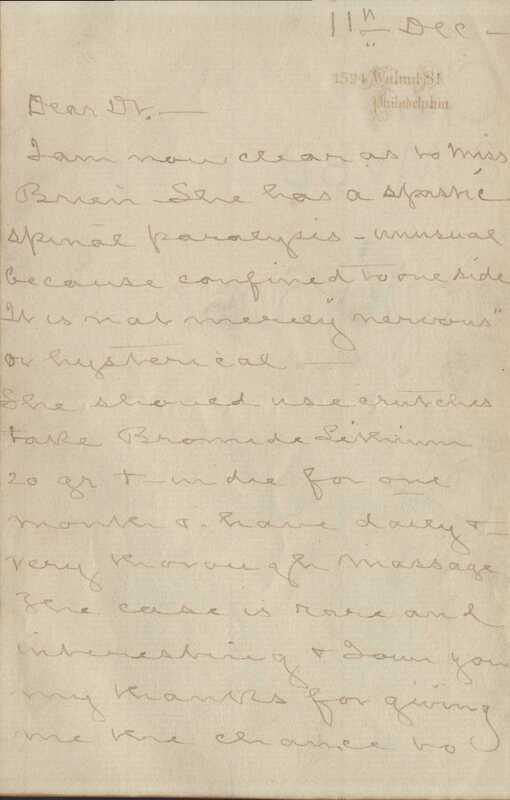 11th Dec -
1524 Walnut St.
Philadelphia
Dear Dr. —
I am now clear as to Miss
Brien She has a spastic
spinal paralysis - unusual
because confined to one side
It is not merely "nervous"
or hysterical —
She should use crutches
take Bromide Lithium
20 gr t - in die for one
month & have daily &
very thorough massage
The case is rare and
interesting & I owe you
my thanks for giving
me the chance to